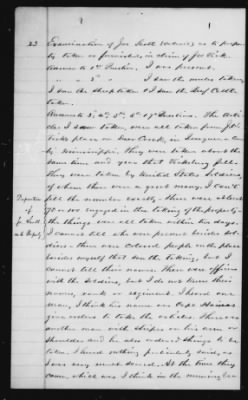 23 Examination of Joe Scott witness as to property
taken or furnished, in claim of Jno. Fick.
Answer to 1st Question. I was present.
" " 2" " I saw the mules taken
I saw the sheep taken & I saw the Beef Cattle
taken.
Answer to 3, 4, 5, 6, Questions. The arti-
cles I saw taken, were all taken from
place on Deer Creek, in Issaquena Coun-
ty Mississippi, they were taken about the
same time and year that Vicksburg fell.
They were taken by United States Soldiers,
of whom there were a great many. I can't
tell the number exactly - there were about
or so engaged in the taking of the property
the things were all taken within two days.
I cannot tell who were present besides sol-
diers - there were colored people on the place
besides myself that saw the taking, but I
cannot tell their names. There were officers
with the soldiers, but I do not know their
name, rank or regiment. I heard one
man, I think his name was Capt.
give orders to take the articles. There was
another man with stripes on his arm or
shoulder and he also ordered things to be
taken. I heard nothing particularly said, as
I was very much scared. At the time they
came, which was I think in the morning
Deposition
of
Joe Scott
as to Property